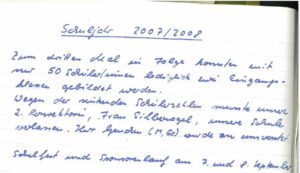 Schuljahr 2007/2008
Zum dritten Mal in Folge konnten mit
nur 50 Schüler/innen lediglich zwei Eingangs-
klassen gebildet werden.
Wegen der sinkenden Schülerzahlen musste unsere
2. Konrektorin, Frau Silbernagel, unsere Schule
verlassen. Herr (M, Ge) wurde an uns versetzt
Schulfest und Sponsorenlauf am 7. und 8. September